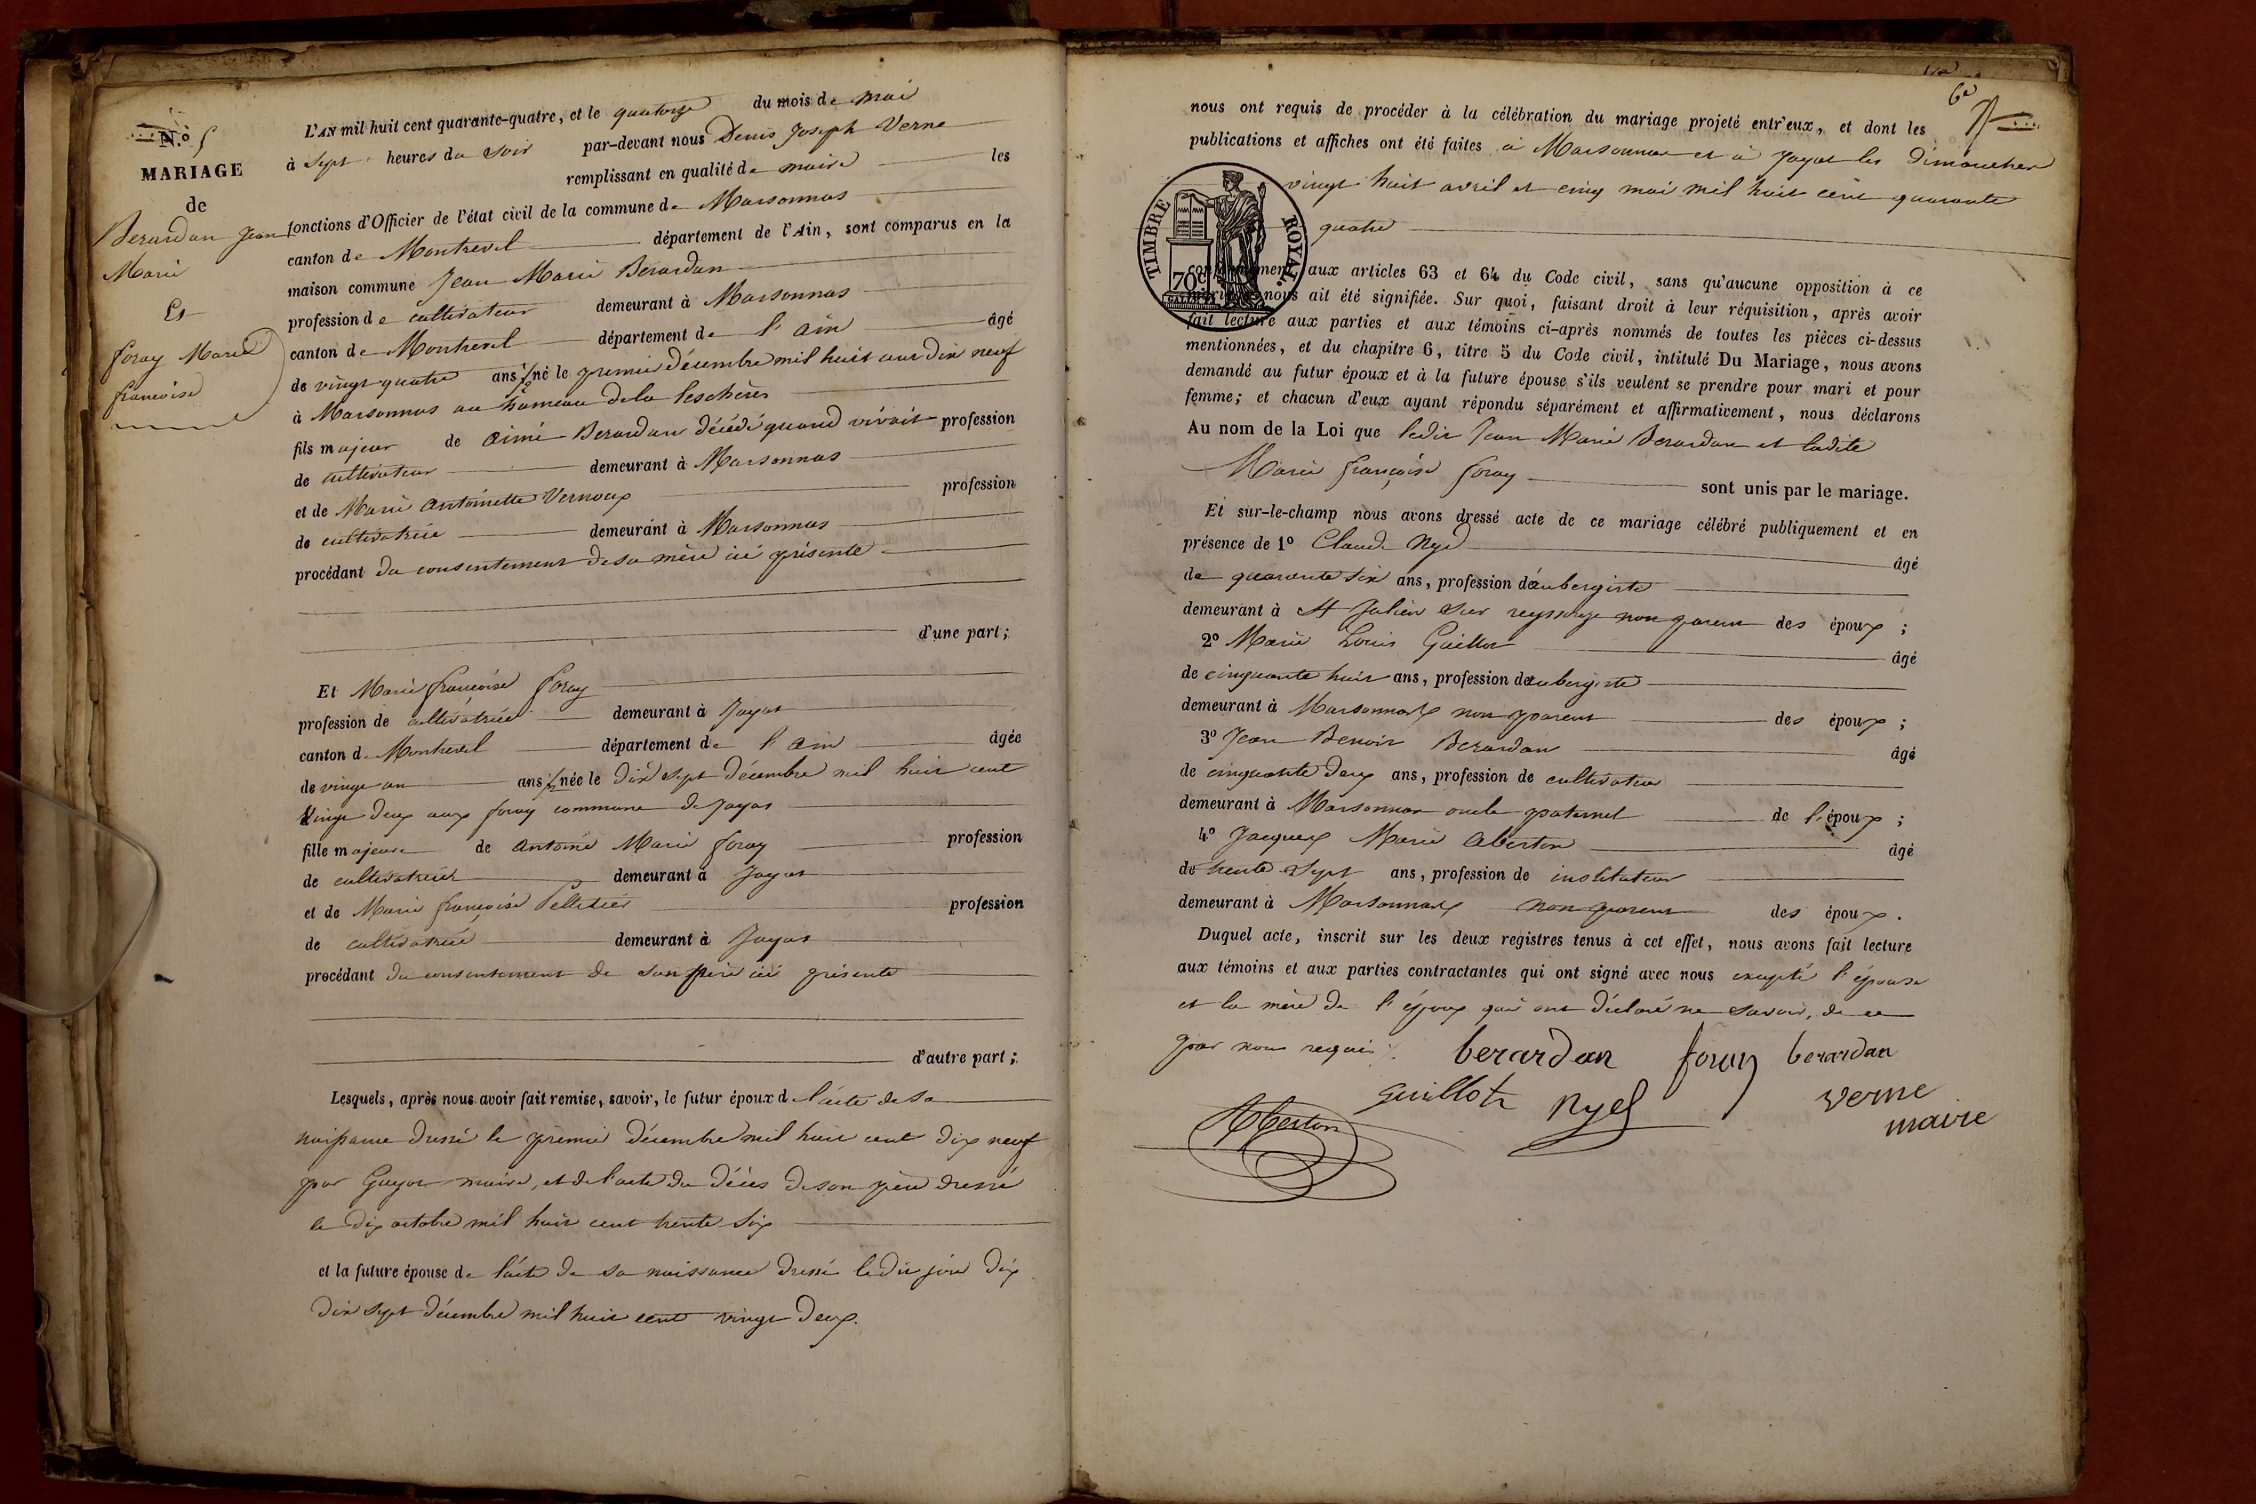 N.º 5
MARIAGE
de
Berardan Jean
Marie
Et
foray Marie
françoise
L'AN mil huit cent quarante-quatre, et le quatorze du mois de mai
à Sept heures du Soir par-devant nous Denis Joseph Verne
remplissant en qualité de maire les
fonctions d'Officier de l'état civil de la commune de Marsonnas
canton de Montrevel département de l'Ain, sont comparus en la
maison commune Jean Marie Berardan
profession de cultivateur demeurant à Marsonnas
canton de Montrevel département de l'ain âgé
de vingt quatre ans 1/2 né le premier décembre mil huit cent dix neuf
à Marsonnas au hameau de la leschères
fils majeur de aimé Berardan décédé quand vivait profession
de cultivateur demeurant à Marsonnas
et de Marie antoinette Vernoux profession
de cultivatrice demeurant à Marsonnas
procédant du consentement de sa mère ici présente
d'une part;
Et Marie françoise foray
profession de cultivatrice demeurant à Jayat
canton de Montrevel département de l'ain âgée
de vingt un ans 1/2 née le dix sept décembre mil huit cent
vingt deux aux foray commune de Jayat
fille majeure de antoine Marie foray profession
de cultivateur demeurant à Jayat
et de Marie françoise Pelletier profession
de cultivatrice demeurant à Jayat
procédant du consentement de son père ici présente
d'autre part;
Lesquels, après nous avoir fait remise, savoir, le futur époux de l'acte de sa
naissance dressé le premier décembre mil huit cent dix neuf
par Guyot maire, et de l'acte du décès de son père dressé
le dix octobre mil huit cent trente six
et la future épouse de l'acte de sa naissance dressé ledit jour dix
dix sept décembre mil huit cent vingt deux.
nous ont requis de procéder à la célébration du mariage projeté entr'eux, et dont les
publications et affiches ont été faites à Marsonnas et à Jayat les dimanches
vingt huit avril et cinq mai mil huit cent quarante
quatre
TIMBRE ROYAL.
70c
conformément aux articles 63 et 64 du Code civil, sans qu'aucune opposition à ce
mariage nous ait été signifiée. Sur quoi, faisant droit à leur réquisition, après avoir
fait lecture aux parties et aux témoins ci-après nommés de toutes les pièces ci-dessus
mentionnées, et du chapitre 6, titre 5 du Code civil, intitulé Du Mariage, nous avons
demandé au futur époux et à la future épouse s'ils veulent se prendre pour mari et pour
femme; et chacun d'eux ayant répondu séparément et affirmativement, nous déclarons
Au nom de la Loi que ledit Jean Marie Berardan et ladite
Marie françoise foray sont unis par le mariage.
Et sur-le-champ nous avons dressé acte de ce mariage célébré publiquement et en
présence de 1º Claude Nyel âgé
de quarante six ans, profession d'aubergiste
demeurant à St Julien sur reyssouze non parent des époux;
2º Marie Louis Guillot âgé
de cinquante huit ans, profession d'aubergiste
demeurant à Marsonnas non parent des époux;
3º Jean Benoit Berardan âgé
de cinquante deux ans, profession de cultivateur
demeurant à Marsonnas oncle paternel de l'époux;
4º Jacques Marie Aberton âgé
de trente Sept ans, profession de instituteur
demeurant à Marsonnas non parent des époux.
Duquel acte, inscrit sur les deux registres tenus à cet effet, nous avons fait lecture
aux témoins et aux parties contractantes qui ont signé avec nous excepté l'épouse
et la mère de l'époux qui ont déclaré ne savoir, de ce
par nous requis.
berardan foray berardan
Guillot Nyel verne
Aberton maire